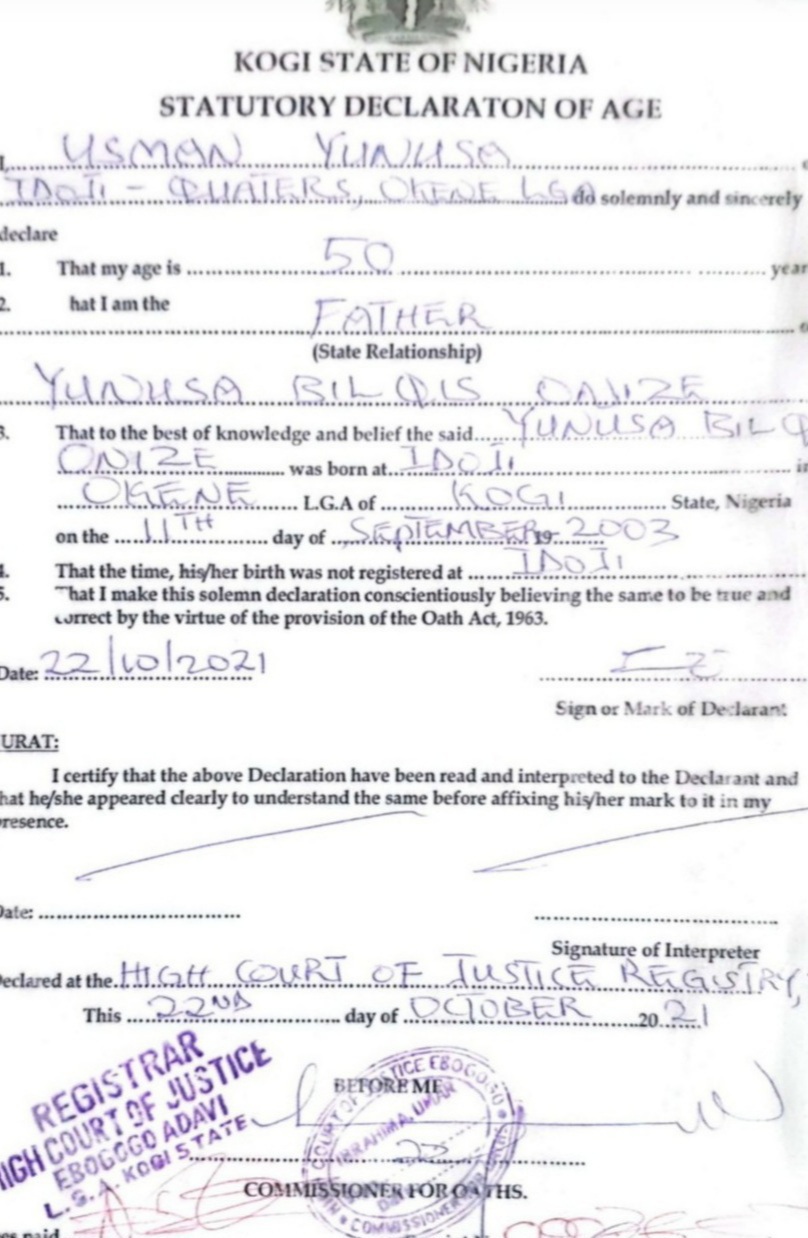 KOGI STATE OF NIGERIA
STATUTORY DECLARATON OF AGE
I, USMAN YUNUSA
IDOJI - QUATERS, OKENE LGA do solemnly and sincerely
declare
1. That my age is 50 year
2. hat I am the
FATHER
(State Relationship)
YUNUSA BILQIS ONIZE
3. That to the best of knowledge and belief the said YUNUSA BILQ
ONIZE was born at IDOJI in
OKENE L.G.A of KOGI State, Nigeria
on the 11TH day of SEPTEMBER 19 2003
4. That the time, his/her birth was not registered at IDOJI
5. That I make this solemn declaration conscientiously believing the same to be true and
correct by the virtue of the provision of the Oath Act, 1963.
Date: 22/10/2021
Sign or Mark of Declarant
URAT:
I certify that the above Declaration have been read and interpreted to the Declarant and
hat he/she appeared clearly to understand the same before affixing his/her mark to it in my
resence.
Date:
Signature of Interpreter
eclared at the HIGH COURT OF JUSTICE REGISTRY,
This 22ND day of OCTOBER 20 21
REGISTRAR
HIGH COURT OF JUSTICE
EBOGOGO ADAVI
L.G.A. KOGI STATE
BEFORE ME
COMMISSIONER FOR OATHS.
es paid